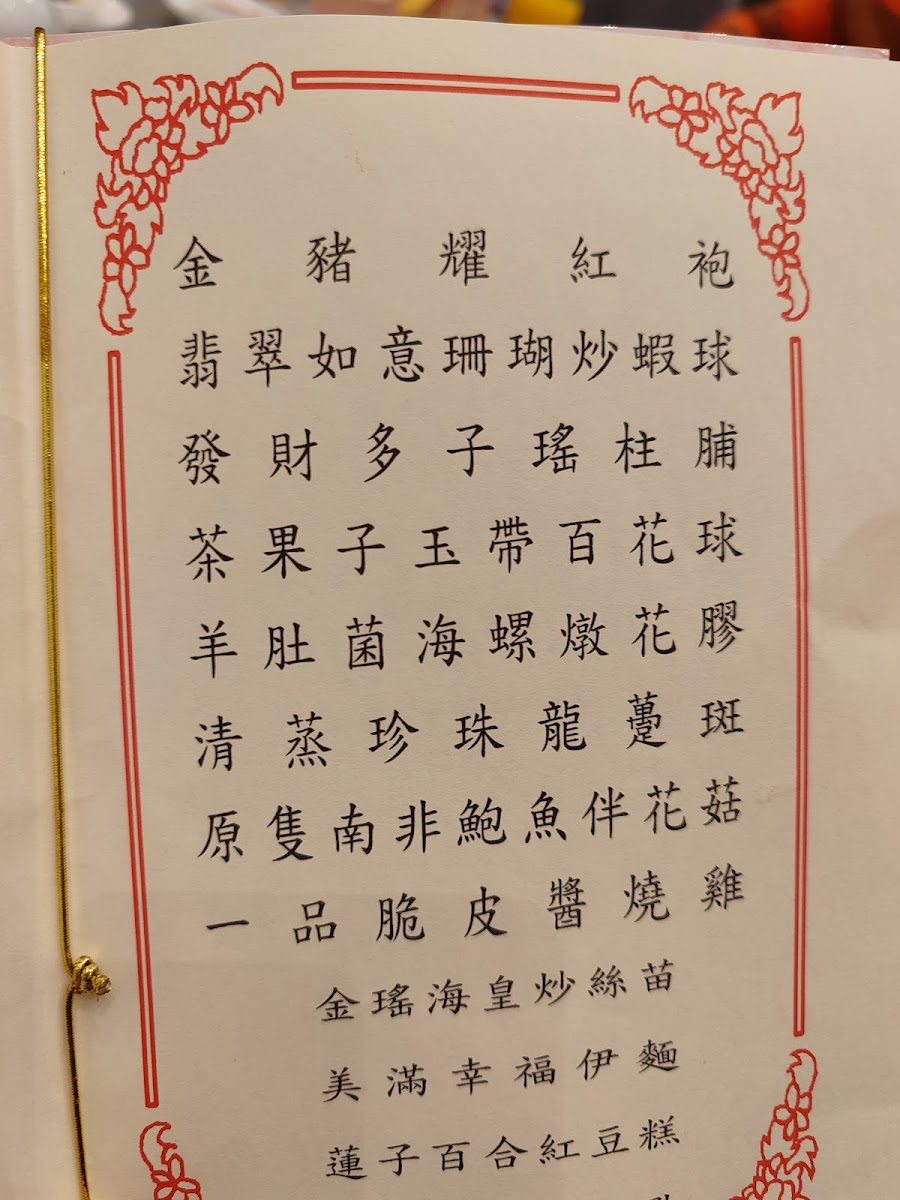 金豬耀紅袍
翡翠如意珊瑚炒蝦球
發財多子瑤柱脯
茶果子玉帶百花球
羊肚菌海螺燉花膠
清蒸珍珠龍躉斑
原隻南非鮑魚伴花菇
一品脆皮醬燒雞
金瑤海皇炒絲苗
美滿幸福伊麵
蓮子百合紅豆糕